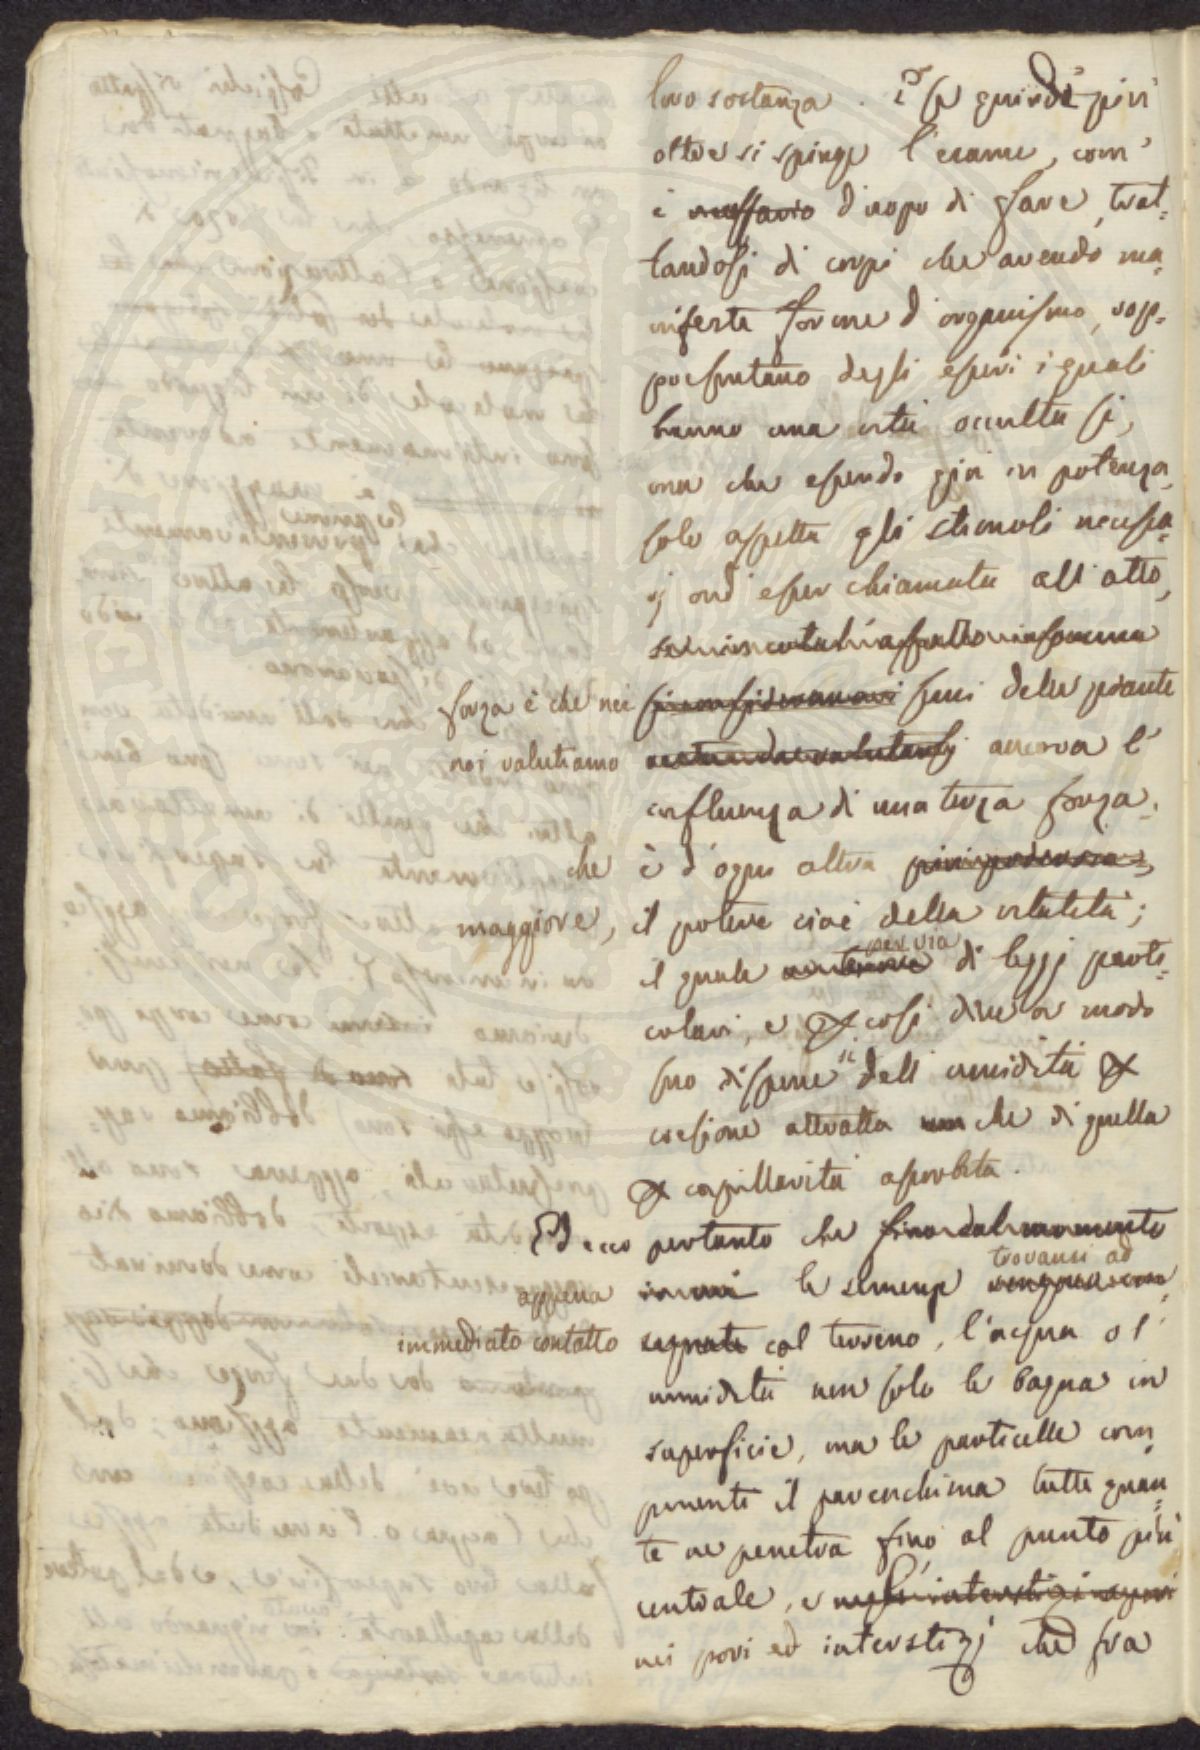 loro sostanza. E se quindi più
oltre si spinge l'esame, com'
è necessario d'uopo di fare, trat-
tandosi di corpi che avendo ma-
nifeste forme d'organismo, rap-
presentano degli esseri i quali
hanno una vita occulta sì,
ma che essendo già in potenza,
solo aspetta gli stimoli necessa-
rj ond'esser chiamata all'atto,
forza è che nei semi delle piante
noi valutiamo ancora l'
influenza di una terza forza,
che è d'ogni altra
maggiore, il potere cioè della vitalità;
per via
il quale di leggi parti-
colari, e così dire a modo
suo dispone dell'umidità
coesione attratta che di quella
capillarità assorbita.
Ed ecco pertanto che fino dal momento
trovansi ad
appena le semenze
immediato contatto col terreno, l'acqua o l'
umidità non solo le bagna in
superficie, ma le particelle com-
ponenti il parenchima tutte quan-
te ne penetra fino al punto più
centrale, e negli interstizj
nei pori ed interstizj che fra